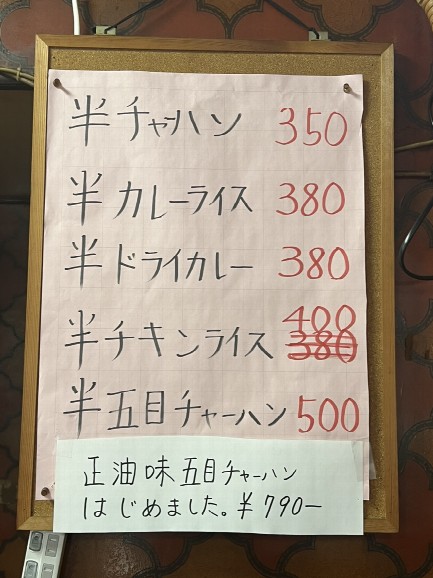 半チャーハン 350
半カレーライス 380
半ドライカレー 380
半チキンライス 400 380
半五目チャーハン 500
正油味五目チャーハン
はじめました。¥790ー